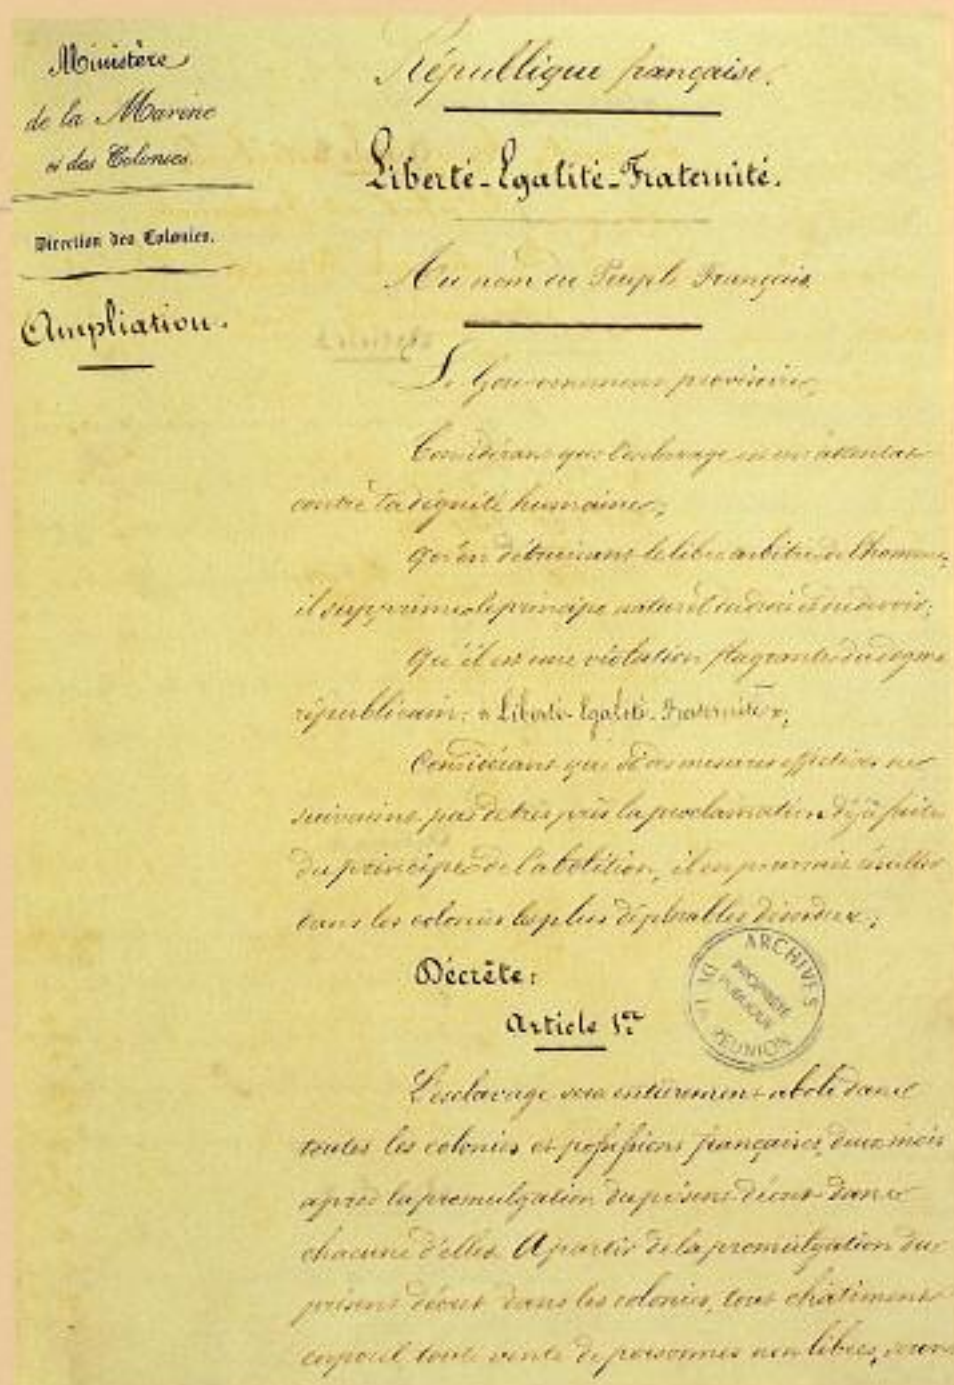 Ministère
de la Marine
et des Colonies.
Direction des Colonies.
Ampliation.
République française.
Liberté-Egalité-Fraternité.
Au nom du Peuple Français.
Le Gouvernement provisoire,
Considérant que l'esclavage est un attentat
contre la dignité humaine;
Qu'en détruisant le libre arbitre de l'homme,
il supprime le principe naturel du droit et du devoir;
Qu'il est une violation flagrante du dogme
républicain: « Liberté-Egalité-Fraternité »;
Considérant que si des mesures effectives ne
suivaient pas de très près la proclamation déjà faite
du principe de l'abolition, il en pourrait résulter
dans les colonies les plus déplorables désordres;
Décrète:
Article 1er
L'esclavage sera entièrement aboli dans
toutes les colonies et possessions françaises, deux mois
après la promulgation du présent décret dans
chacune d'elles. A partir de la promulgation du
présent décret dans les colonies, tout châtiment
corporel, toute vente de personnes non libres, seront
ARCHIVES
DE LA
RÉUNION
PROPRIÉTÉ
PUBLIQUE